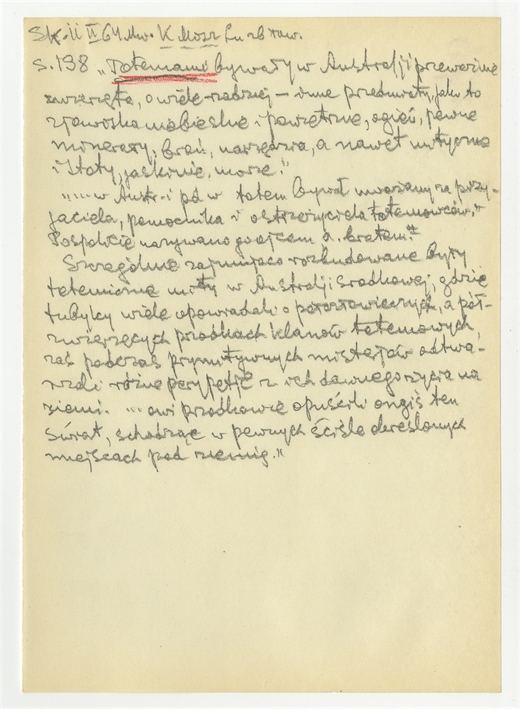 II 64 Mw. K Mosz
s. 198 „Totemami bywały w Australji przeważnie
zwierzęta, o wiele rzadziej – inne przedmioty, jako to
zjawiska niebieskie i powietrzne, ogień, pewne
minerały, broń, narzędzia, a nawet mityczne
i istoty, jaskinie, morze."
"... w Austr-i pd w totem bywał uważany za przy-
jaciela, pomocnika i ostrzeżyciela totemowców."
Pospolicie nazywano go ojcem a. bratem."
Szczególnie zajmująco rozbudowane były
totemiczne mity w Australji środkowej, gdzie
tubylcy wiele opowiadali o półczłowieczych, a pół-
zwierzęcych przodkach klanów totemowych,
zaś podczas prymitywnych misterjów odtwa-
rzali różne perypetje z ich dawnego życia na
ziemi. "... owi przodkowie opuścili ongiś ten
świat, schodząc w pewnych ściśle określonych
miejscach pod ziemię."